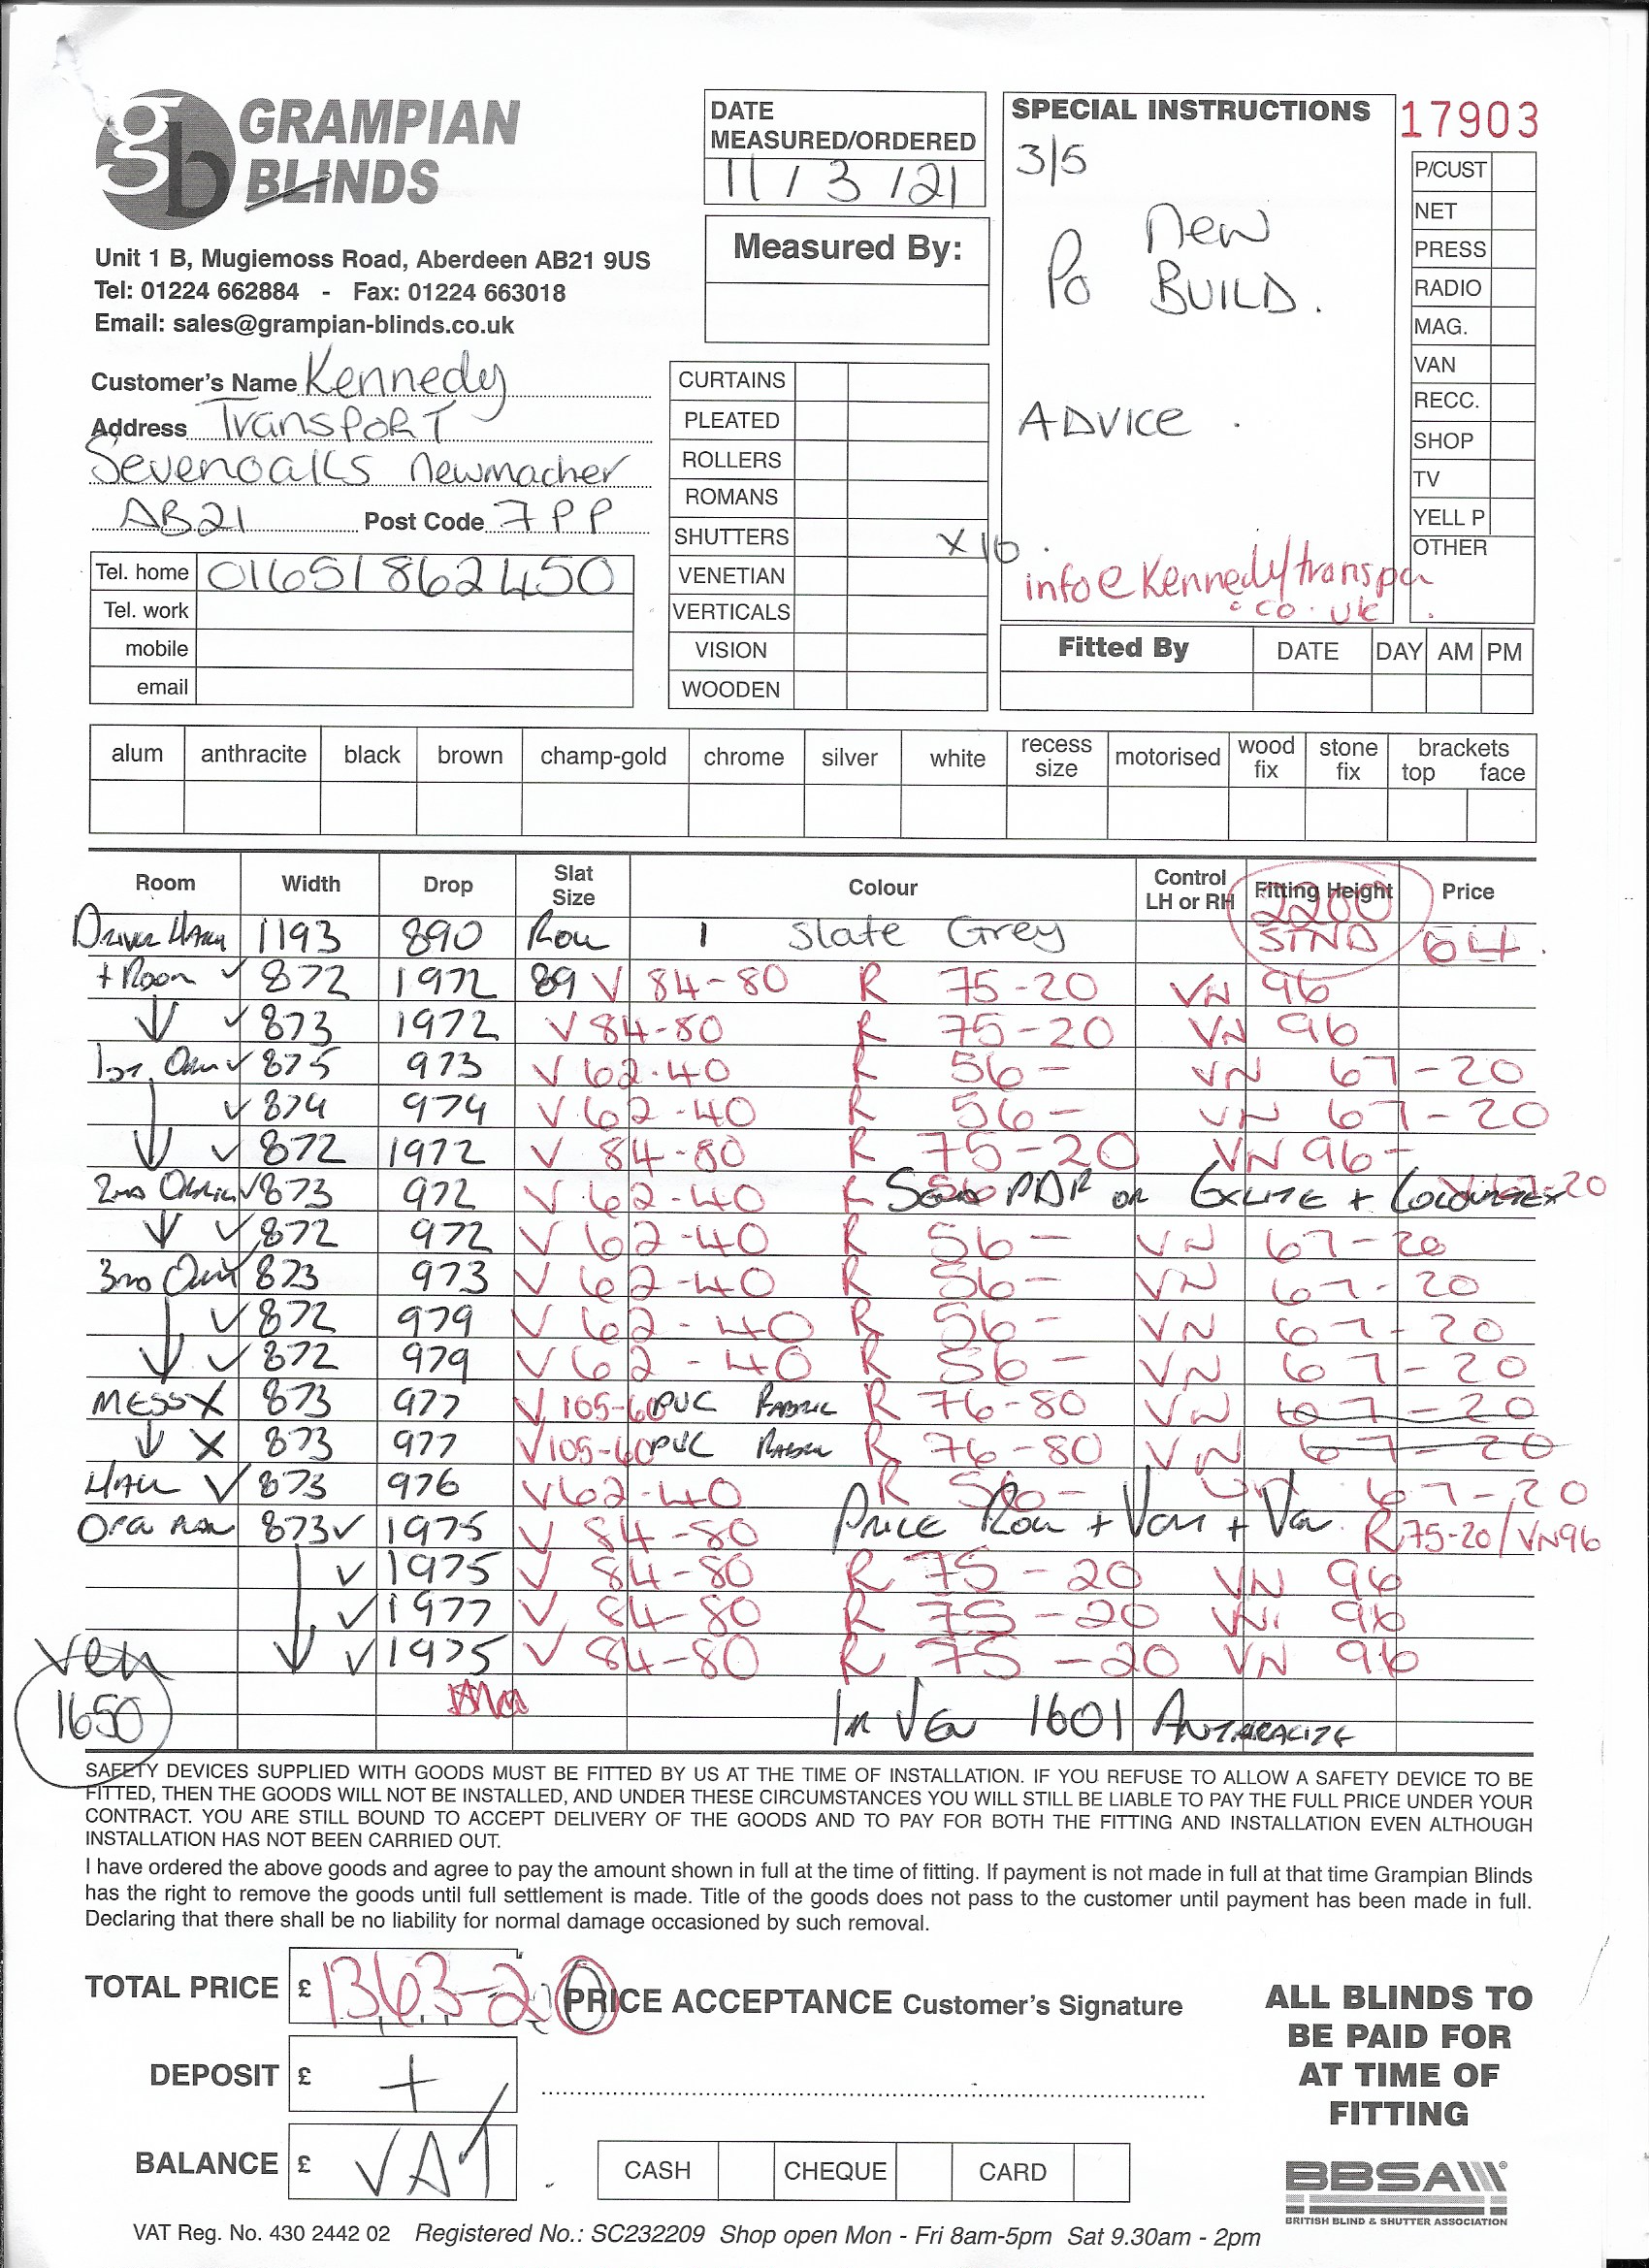 GRAMPIAN
BLINDS
Unit 1 B, Mugiemoss Road, Aberdeen AB21 9US
Tel: 01224 662884 - Fax: 01224 663018
Email: sales@grampian-blinds.co.uk
Customer's Name Kennedy
Address Transport
Sevenoaks Newmacher
AB21 Post Code 7PP
Tel. home 01651862450
Tel. work
mobile
email
DATE
MEASURED/ORDERED
11/3/21
Measured By:
CURTAINS
PLEATED
ROLLERS
ROMANS
SHUTTERS
VENETIAN
VERTICALS
VISION
WOODEN
x16
SPECIAL INSTRUCTIONS
3/5
Po New
BUILD.
ADVICE.
info@Kennedytranspo
.co.uk
17903
P/CUST
NET
PRESS
RADIO
MAG.
VAN
RECC.
SHOP
TV
YELL P
OTHER
Fitted By DATE DAY AM PM
alum anthracite black brown champ-gold chrome silver white recess size motorised wood fix stone fix brackets top face
Room Width Drop Slat Size Colour Control LH or RH Fitting Height Price
2200
DRIVER 1193 890 1 Slate Grey STND 64.
+ Room ✓ 872 1972 89 V 84-80 R 75-20 VN 96
↓ ✓ 873 1972 V 84-80 R 75-20 VN 96
✓ 875 973 V 62.40 R 56- VN 67-20
✓ 874 974 V 62-40 R 56- VN 67-20
↓ ✓ 872 1972 V 84-80 R 75-20 VN 96-
2ND ✓ 873 972 V 62-40 R 56 PDR OR + 20
↓ ✓ 872 972 V 62-40 R 56- VN 67-20
3RD 873 973 V 62-40 R 56- VN 67-20
✓ 872 979 V 62-40 R 56- VN 67-20
↓ ✓ 872 979 V 62-40 R 56- VN 67-20
MESS X 873 977 V 105-60 PVC FABRIC R 76-80 VN 67-20
↓ X 873 977 V 105-60 PVC FABRIC R 76-80 VN 67-20
HALL ✓ 873 976 V 62-40 R 56- VN 67-20
873 ✓ 1975 V 84-80 PRICE ROLL + VER + VEN. R 75-20/VN96
✓ 1975 V 84-80 R 75-20 VN 96
✓ 1977 V 84-80 R 75-20 VN 96
↓ ✓ 1975 V 84-80 R 75-20 VN 96
Ven
1650
IN VEN 1601 ANTHRACITE
SAFETY DEVICES SUPPLIED WITH GOODS MUST BE FITTED BY US AT THE TIME OF INSTALLATION. IF YOU REFUSE TO ALLOW A SAFETY DEVICE TO BE
FITTED, THEN THE GOODS WILL NOT BE INSTALLED, AND UNDER THESE CIRCUMSTANCES YOU WILL STILL BE LIABLE TO PAY THE FULL PRICE UNDER YOUR
CONTRACT. YOU ARE STILL BOUND TO ACCEPT DELIVERY OF THE GOODS AND TO PAY FOR BOTH THE FITTING AND INSTALLATION EVEN ALTHOUGH
INSTALLATION HAS NOT BEEN CARRIED OUT.
I have ordered the above goods and agree to pay the amount shown in full at the time of fitting. If payment is not made in full at that time Grampian Blinds
has the right to remove the goods until full settlement is made. Title of the goods does not pass to the customer until payment has been made in full.
Declaring that there shall be no liability for normal damage occasioned by such removal.
TOTAL PRICE £ 1363-20 PRICE ACCEPTANCE Customer's Signature
DEPOSIT £ +
BALANCE £ VAT
CASH CHEQUE CARD
ALL BLINDS TO
BE PAID FOR
AT TIME OF
FITTING
BBSA
BRITISH BLIND & SHUTTER ASSOCIATION
VAT Reg. No. 430 2442 02 Registered No.: SC232209 Shop open Mon - Fri 8am-5pm Sat 9.30am - 2pm